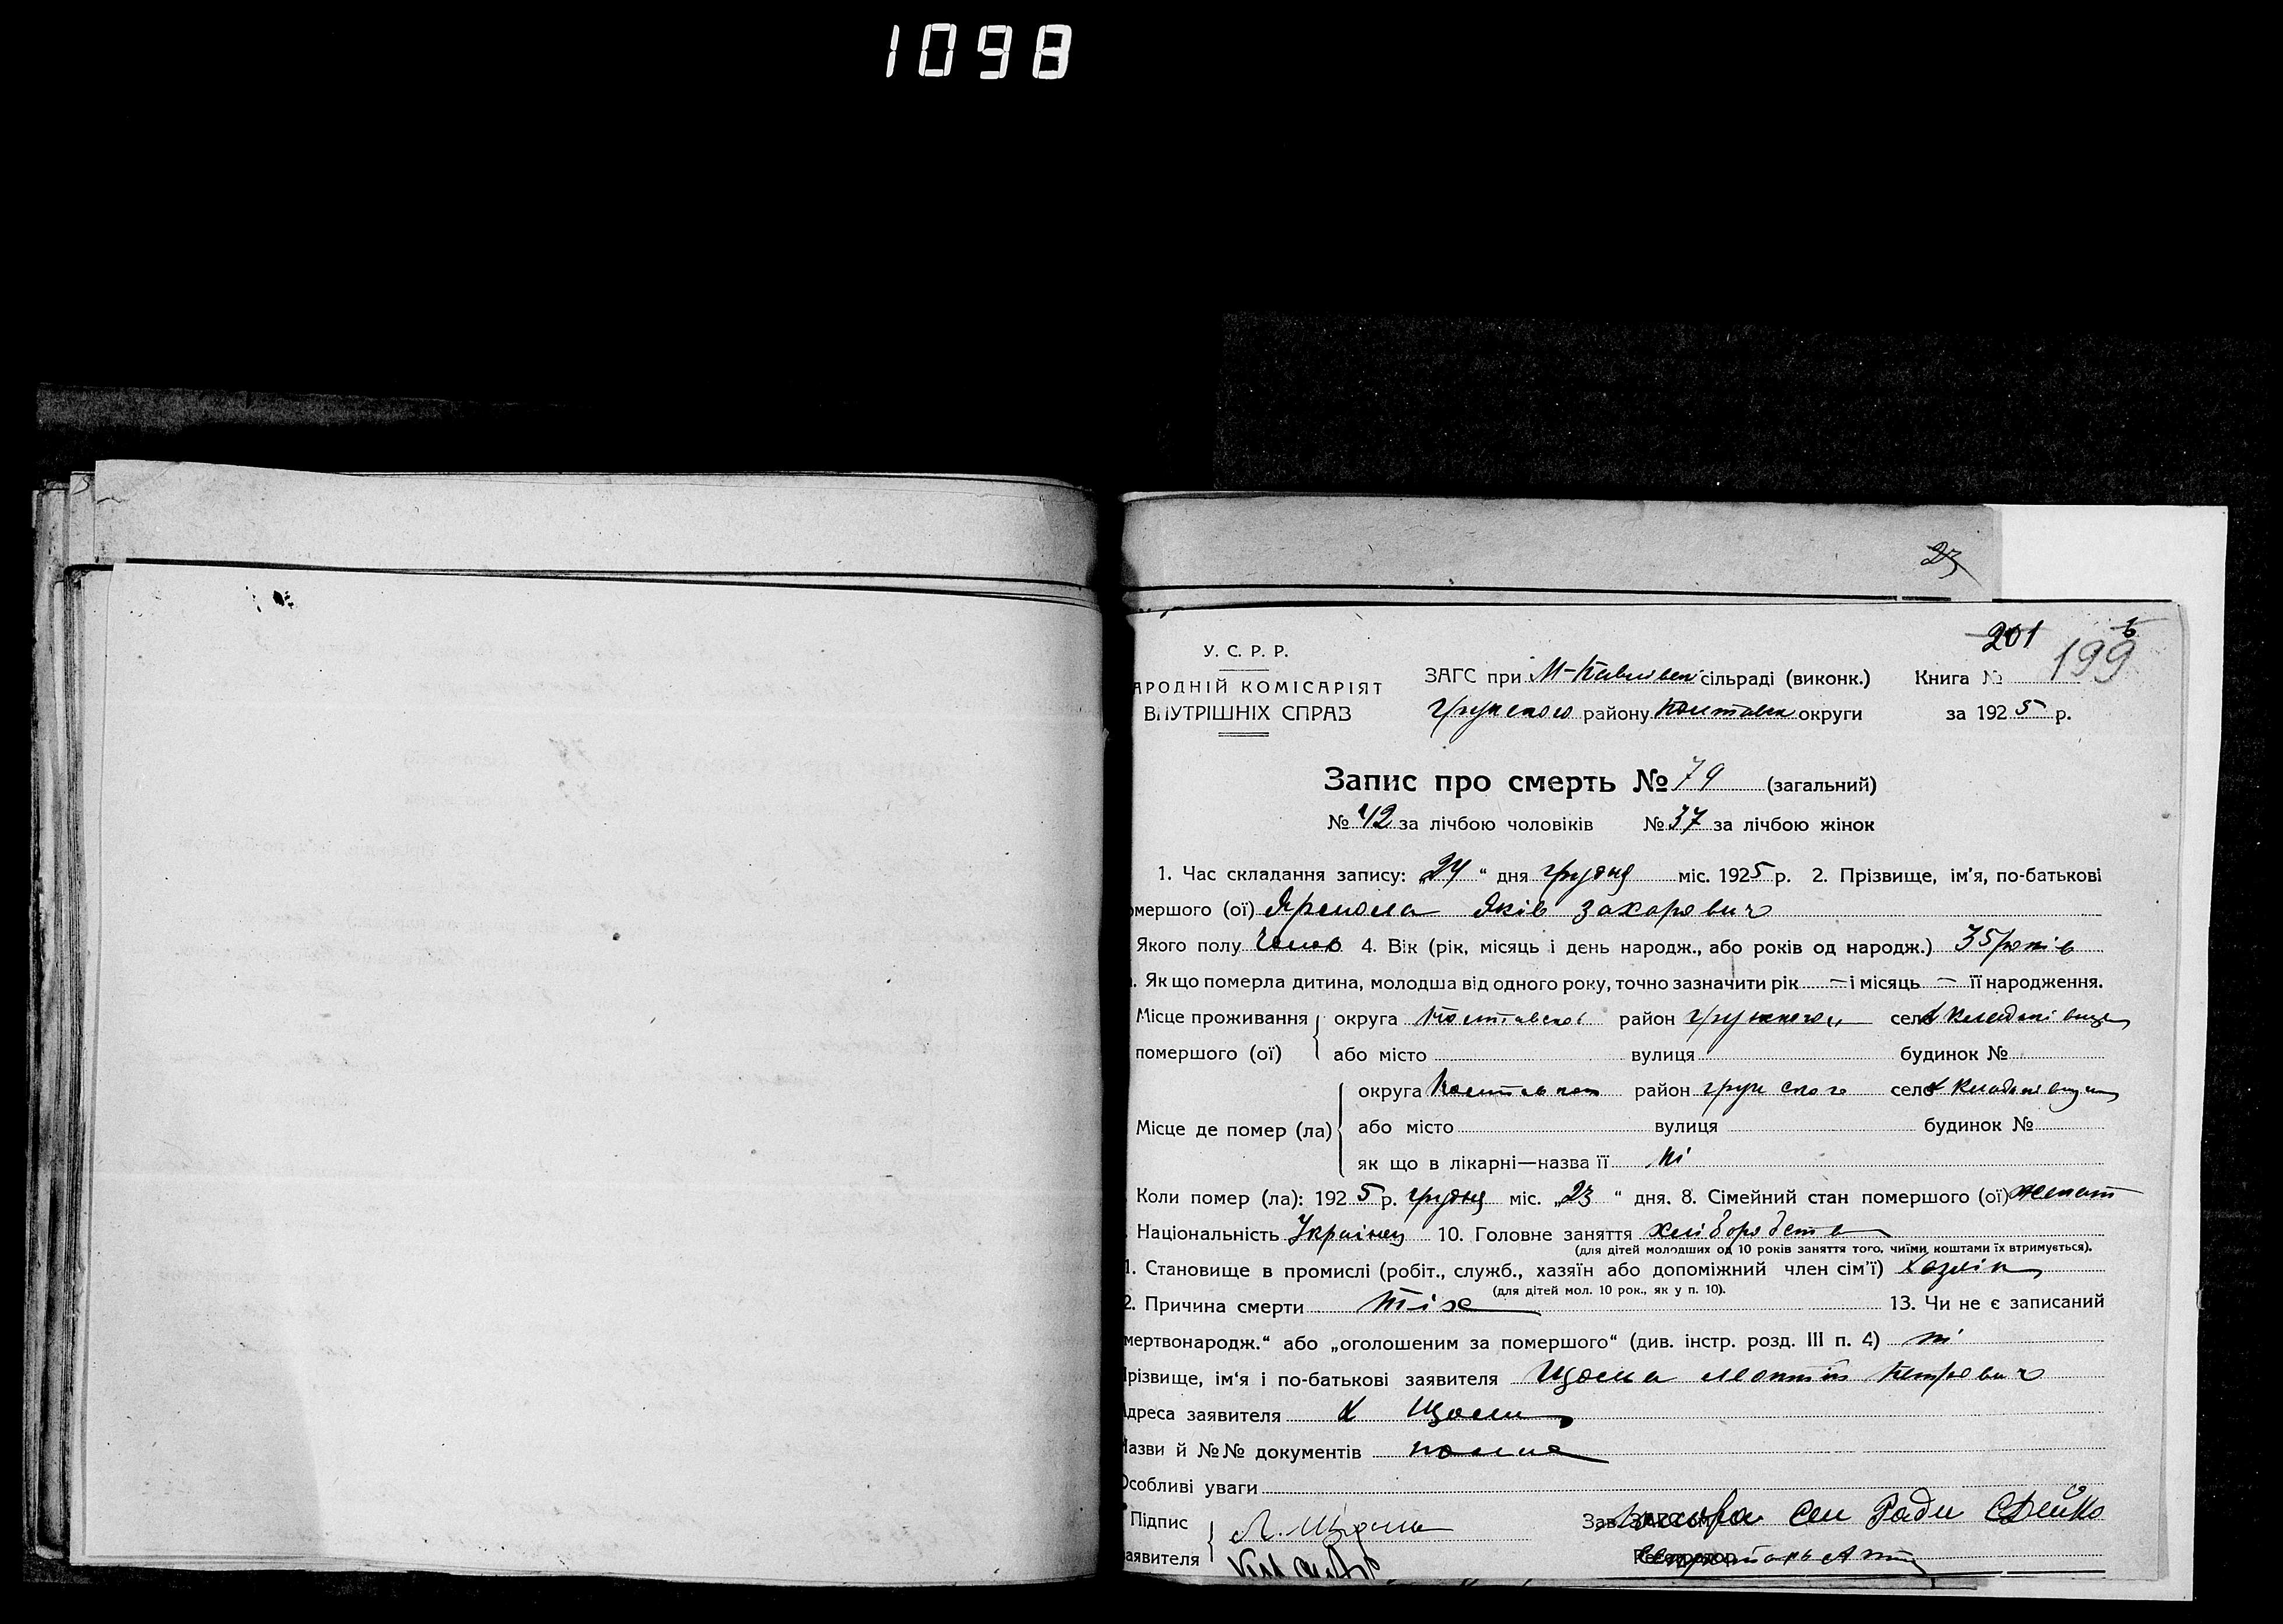 1098
23
201
199
У. С. Р. Р.
АРОДНІЙ КОМІСАРІЯТ
ВНУТРІШНІХ СПРАВ
ЗАГС при сільраді (виконк.) Книга №
району округи за 1925 р.
Запис про смерть № 79 (загальний)
№ 42 за лічбою чоловіків № 37 за лічбою жінок
1. Час складання запису: „24“ дня грудня міс. 1925 р. 2. Прізвище, ім'я, по-батькові
омершого (ої) Яків Захарович
Якого полу Чолов 4. Вік (рік, місяць і день народж., або років од народж.) 35 років
Як що померла дитина, молодша від одного року, точно зазначити рік — і місяць — її народження.
Місце проживання округа Полтавской район село
помершого (ої) або місто вулиця будинок №
округа район грунского село
Місце де помер (ла) або місто вулиця будинок №
як що в лікарні—назва її ні
Коли помер (ла): 1925 р. грудня міс. „23“ дня. 8. Сімейний стан помершого (ої) женат
Національність Українец 10. Головне заняття хліборобств
(для дітей молодших од 10 років заняття того, чиїми коштами їх втримується).
1. Становище в промислі (робіт., служб., хазяїн або допоміжний член сім'ї) хазяін
(для дітей мол. 10 рок., як у п. 10).
2. Причина смерти 13. Чи не є записаний
мертвонародж.“ або „оголошеним за помершого“ (див. інстр. розд. III п. 4) ні
різвище, ім'я і по-батькові заявителя Щома Петрович
дреса заявителя х Щоми
Назви й №№ документів
Особливі уваги
Підпис Л. Щома Зав. ЗАГС'ом Сел Ради
аявителя Реєстратор